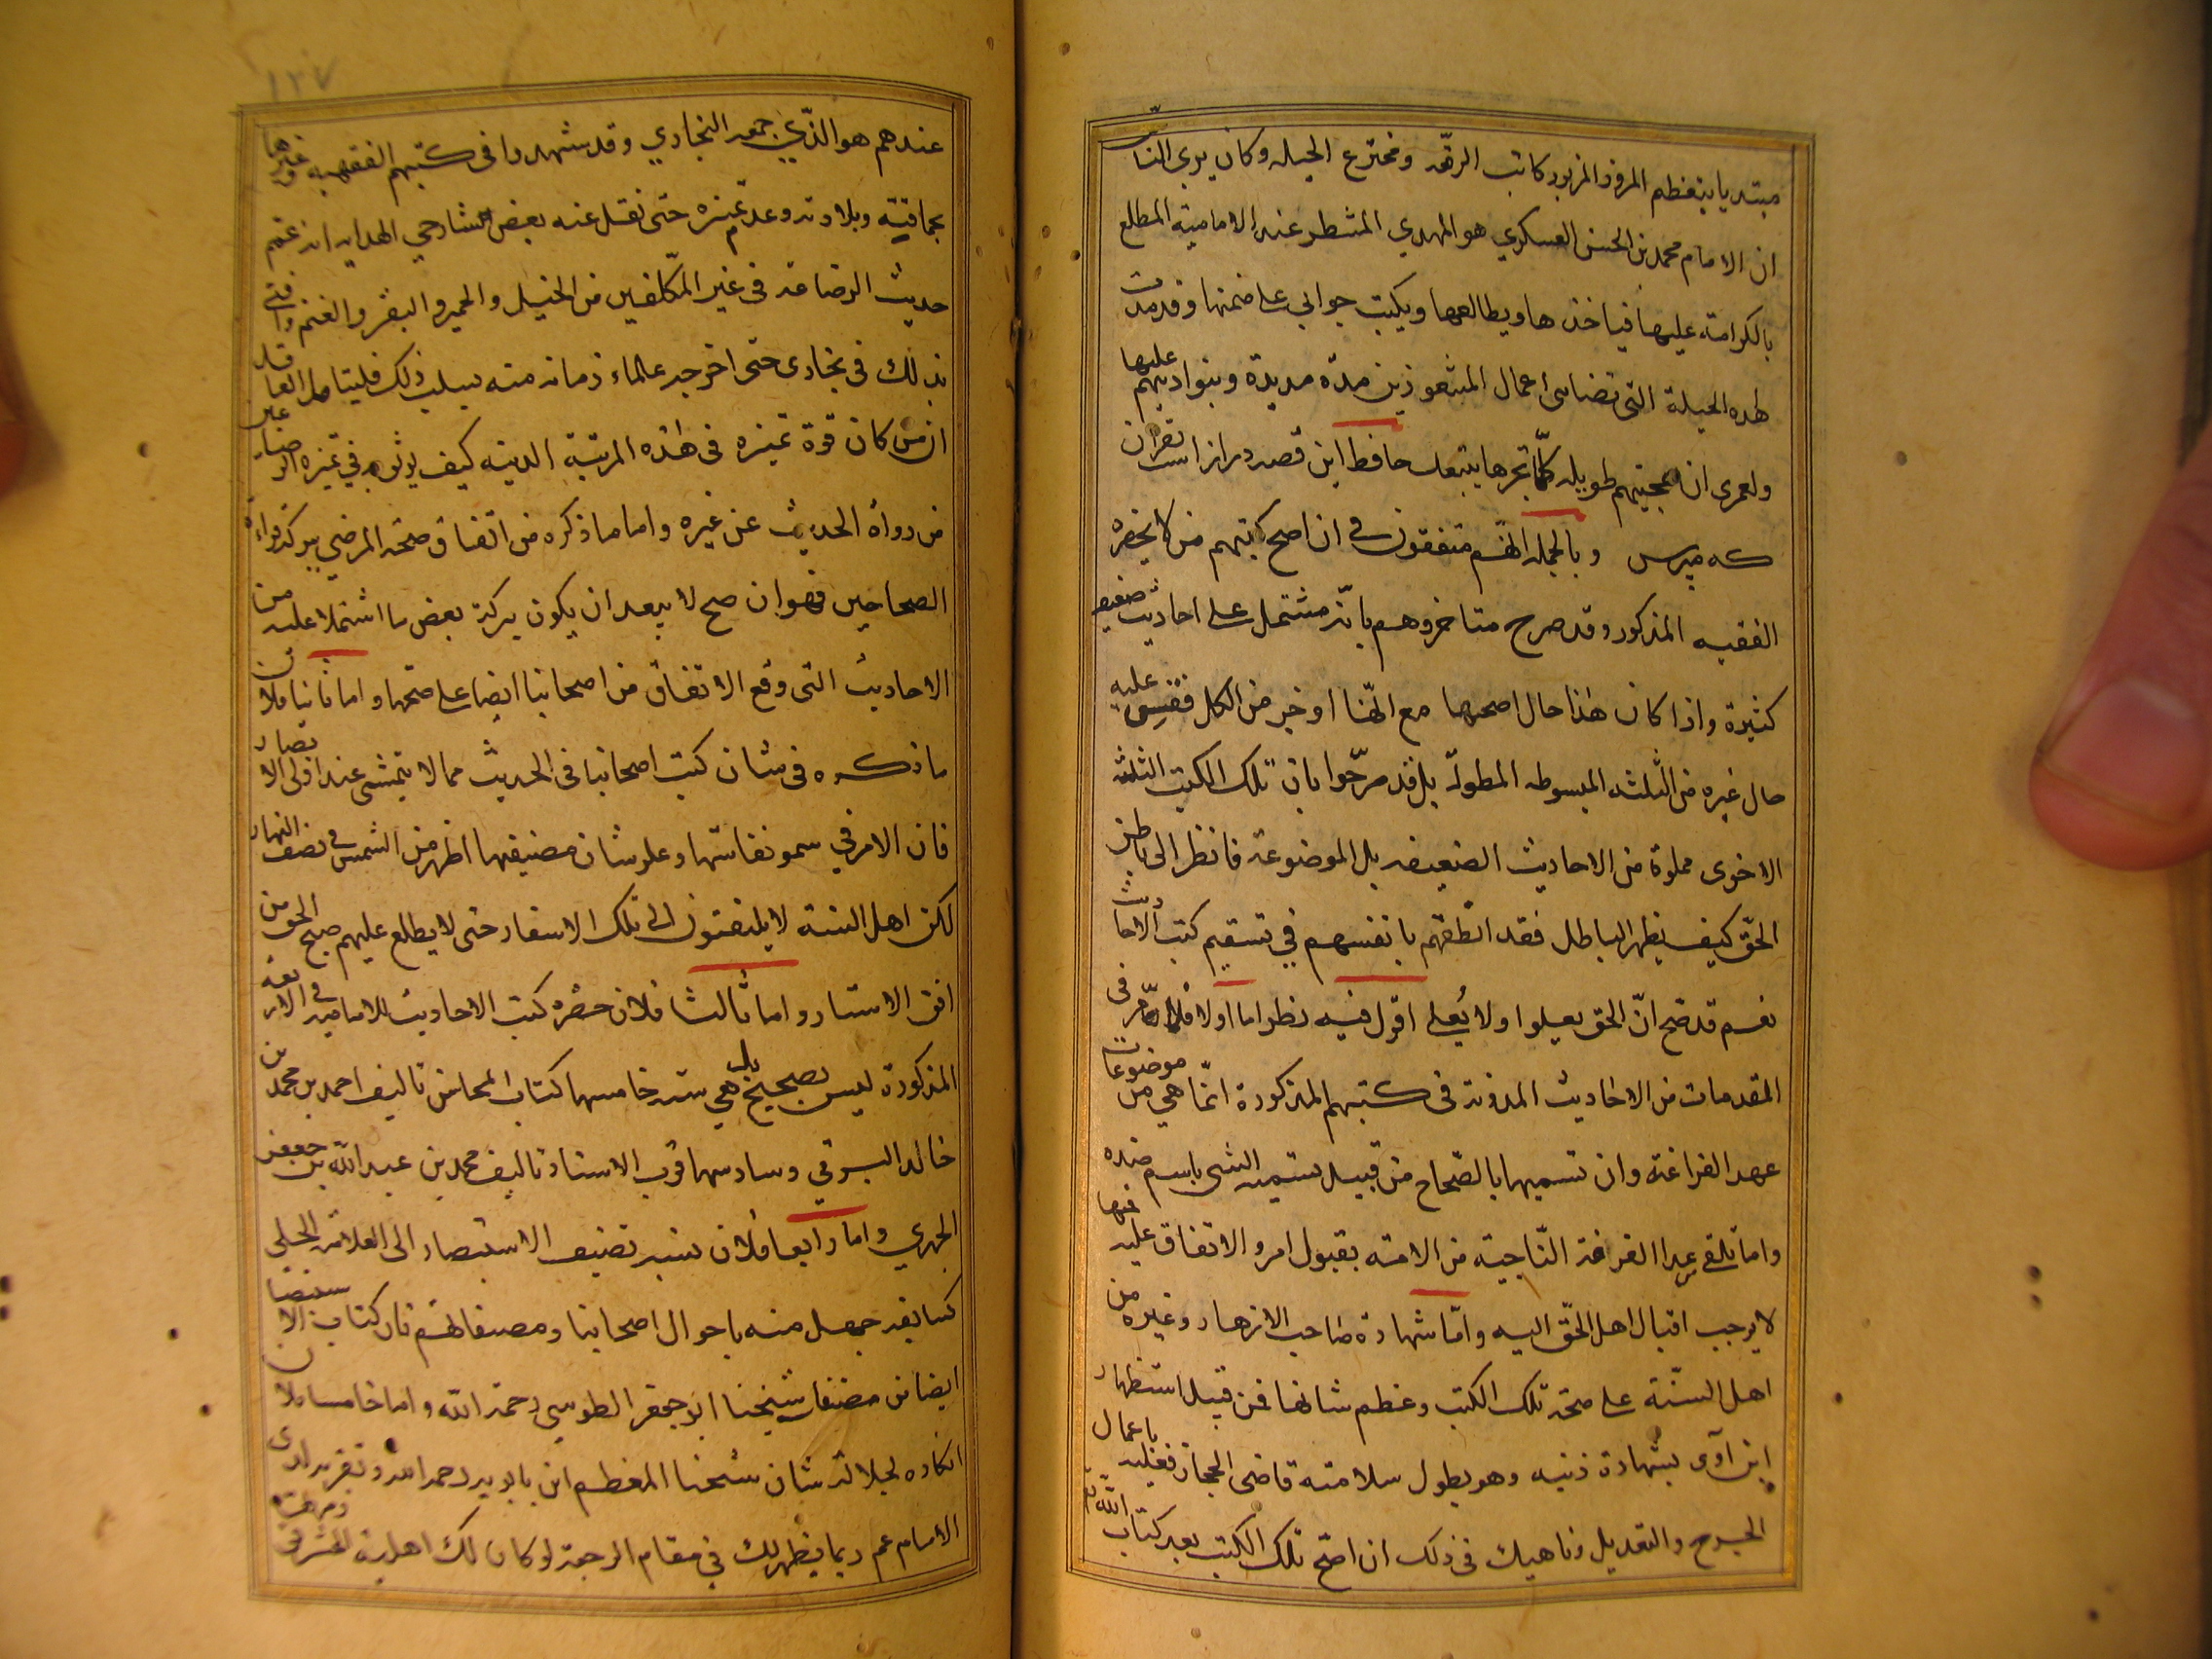 مبتديا بتعظيم المرفوز المزبور كاتب الرقعه ومخترع الحيله وكان يري الناس
ان الامام محمد بن الحسن العسكري هو المهدي المنتظر عند الامامية المطلع
بالكرامة عليها فياخذها ويطالعها ويكتب جوابي على ضمنها وقد مدت
لهذه الحيلة التى تضاهى اعمال المشعوذين مدة مديدة وبنوا دينهم عليها
ولعمرى ان طويله كلما تجرها يتبعك حافظ اين قصه دراز است بقران
كه مپرس وبالجمله انهم متفقون فى ان اصح كتبهم من لا يحضره
الفقيه المذكور وقد صرح متاخروهم بانه مشتمل على احاديث ضعيفه
كثيرة واذا كان هذا حال اصحها مع انها اوخر من الكل فقس عليه
حال غيره من الثلثه المبسوطه المطولة بل قد صرحوا بان تلك الكتب الثلثه
الاخرى مملوة من الاحاديث الضعيفه بل الموضوعة فانظر الى باطن
الحق كيف يظهر الباطل فقد انطقهم بانفسهم في تسقيم كتب الاحاديث
نعم قد صح ان الحق يعلوا ولا يعلى اقول فيه نظر اما اولا فلما مر فى
المقدمات من الاحاديث المدونة فى كتبهم المذكورة انما هي من موضوعات
عهد الفراعنة وان تسميها بالصحاح من قبيل تسميه الشى باسم ضده
واما تلقي عدا الفرقة الناجية من الامته بقبول امر والاتفاق عليه فهما
لا يوجب اقبال اهل الحق اليه واما شهادة صاحب الازهار وغيره من
اهل السنة على صحة تلك الكتب وعظم شانها فمن قبيل استظهار
ابن آوى بشهادة ذنبه وهو بطول سلامته قاضى الحجاز فعليه باعمال
الجرح والتعديل وناهيك فى ذلك ان اصح تلك الكتب بعد كتاب الله تع
١٢٧
عندهم هو الذي جمعه البخاري وقد شهدوا فى كتبهم الفقهيه وغيرها
بحماقته وبلادته وعدم تميزه حتى نقل عنه بعض شارحي الهدايه انه عمم
حديث الرضاعة فى غير المكلفين من الخيل والحمير والبقر والغنم وافتى
بذلك فى بخارى حتى اخرجه علماء زمانه منه بسبب ذلك فليتامل العاقل
ان من كان قوة تميزه فى هذه المرتبة الدنيه كيف يوثق به في تميزه الصار عن
من رواة الحديث عن غيره واما ما ذكره من اتفاق صحة المرضي ببركة قراءة
الصحاحين فهو ان صح لا يبعد ان يكون بركة بعض ما اشتملا عليه من
الاحاديث التى وقع الاتفاق من اصحابنا ايضا على صحتها واما ثانيا فلان
ما ذكره فى شان كتب اصحابنا فى الحديث مما لا يتمشى عند اولى الابصار
فان الامر في سمو نفاستها وعلو شان مصنفيها اظهر من الشمس فى نصف النهار
لكن اهل السنة لا يلتفتون الى تلك الاسفار حتى لا يطلع عليهم صبح الحق من
افق الاستار واما ثالثا فلان حصره كتب الاحاديث للاماميه فى الاربعة
المذكورة ليس بصحيح بل هي سته خامسها كتاب المحاسن تاليف احمد بن محمد بن
خالد البرقي وسادسها قرب الاسناد تاليف محمد بن عبد الله بن جعفر
الحميري واما رابعا فلان نسبه تصنيف الاستبصار الى العلامة الحلى
كسابقه جهل منه باحوال اصحابنا ومصنفاتهم فان كتاب الاستبصار
ايضا من مصنفات شيخنا ابو جعفر الطوسي رحمة الله واما خامسا فلان
انكاره لجلالة شان شيخنا المعظم ابن بابويه رحمه الله وتقريره لدى
الامام عم ربما يظهر لك في مقام الرجعة لو كان لك اهلية لشرف